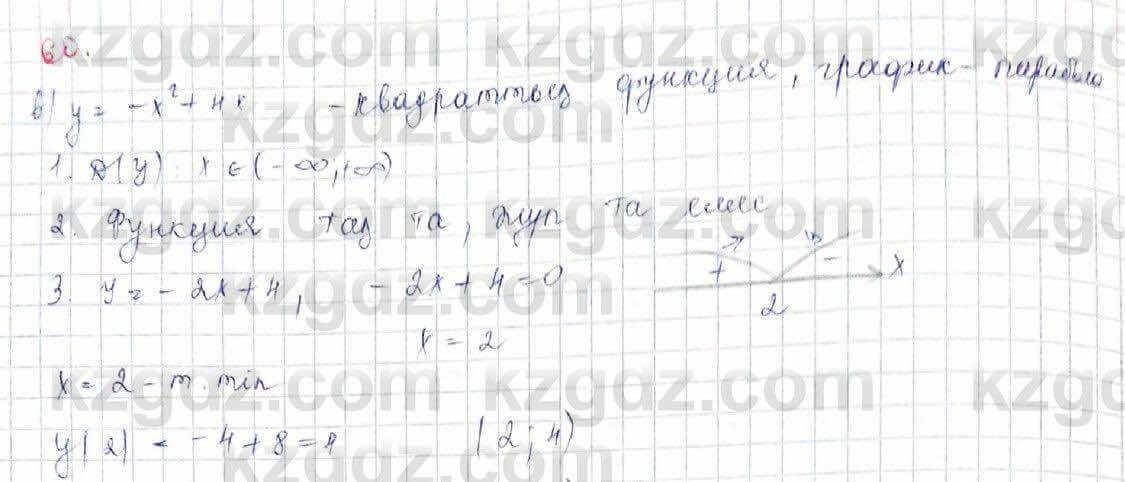 60.
в) y = -x² + 4x - квадраттық функция, график - парабола
1. D(y) x ∈ (-∞, +∞)
2. Функция тақ та, жұп та емес
3. y = -2x + 4, -2x + 4 = 0
+ - x
2
x = 2
x = 2 - т. min
y(2) = -4 + 8 = 4 (2; 4)
kzgdz.com